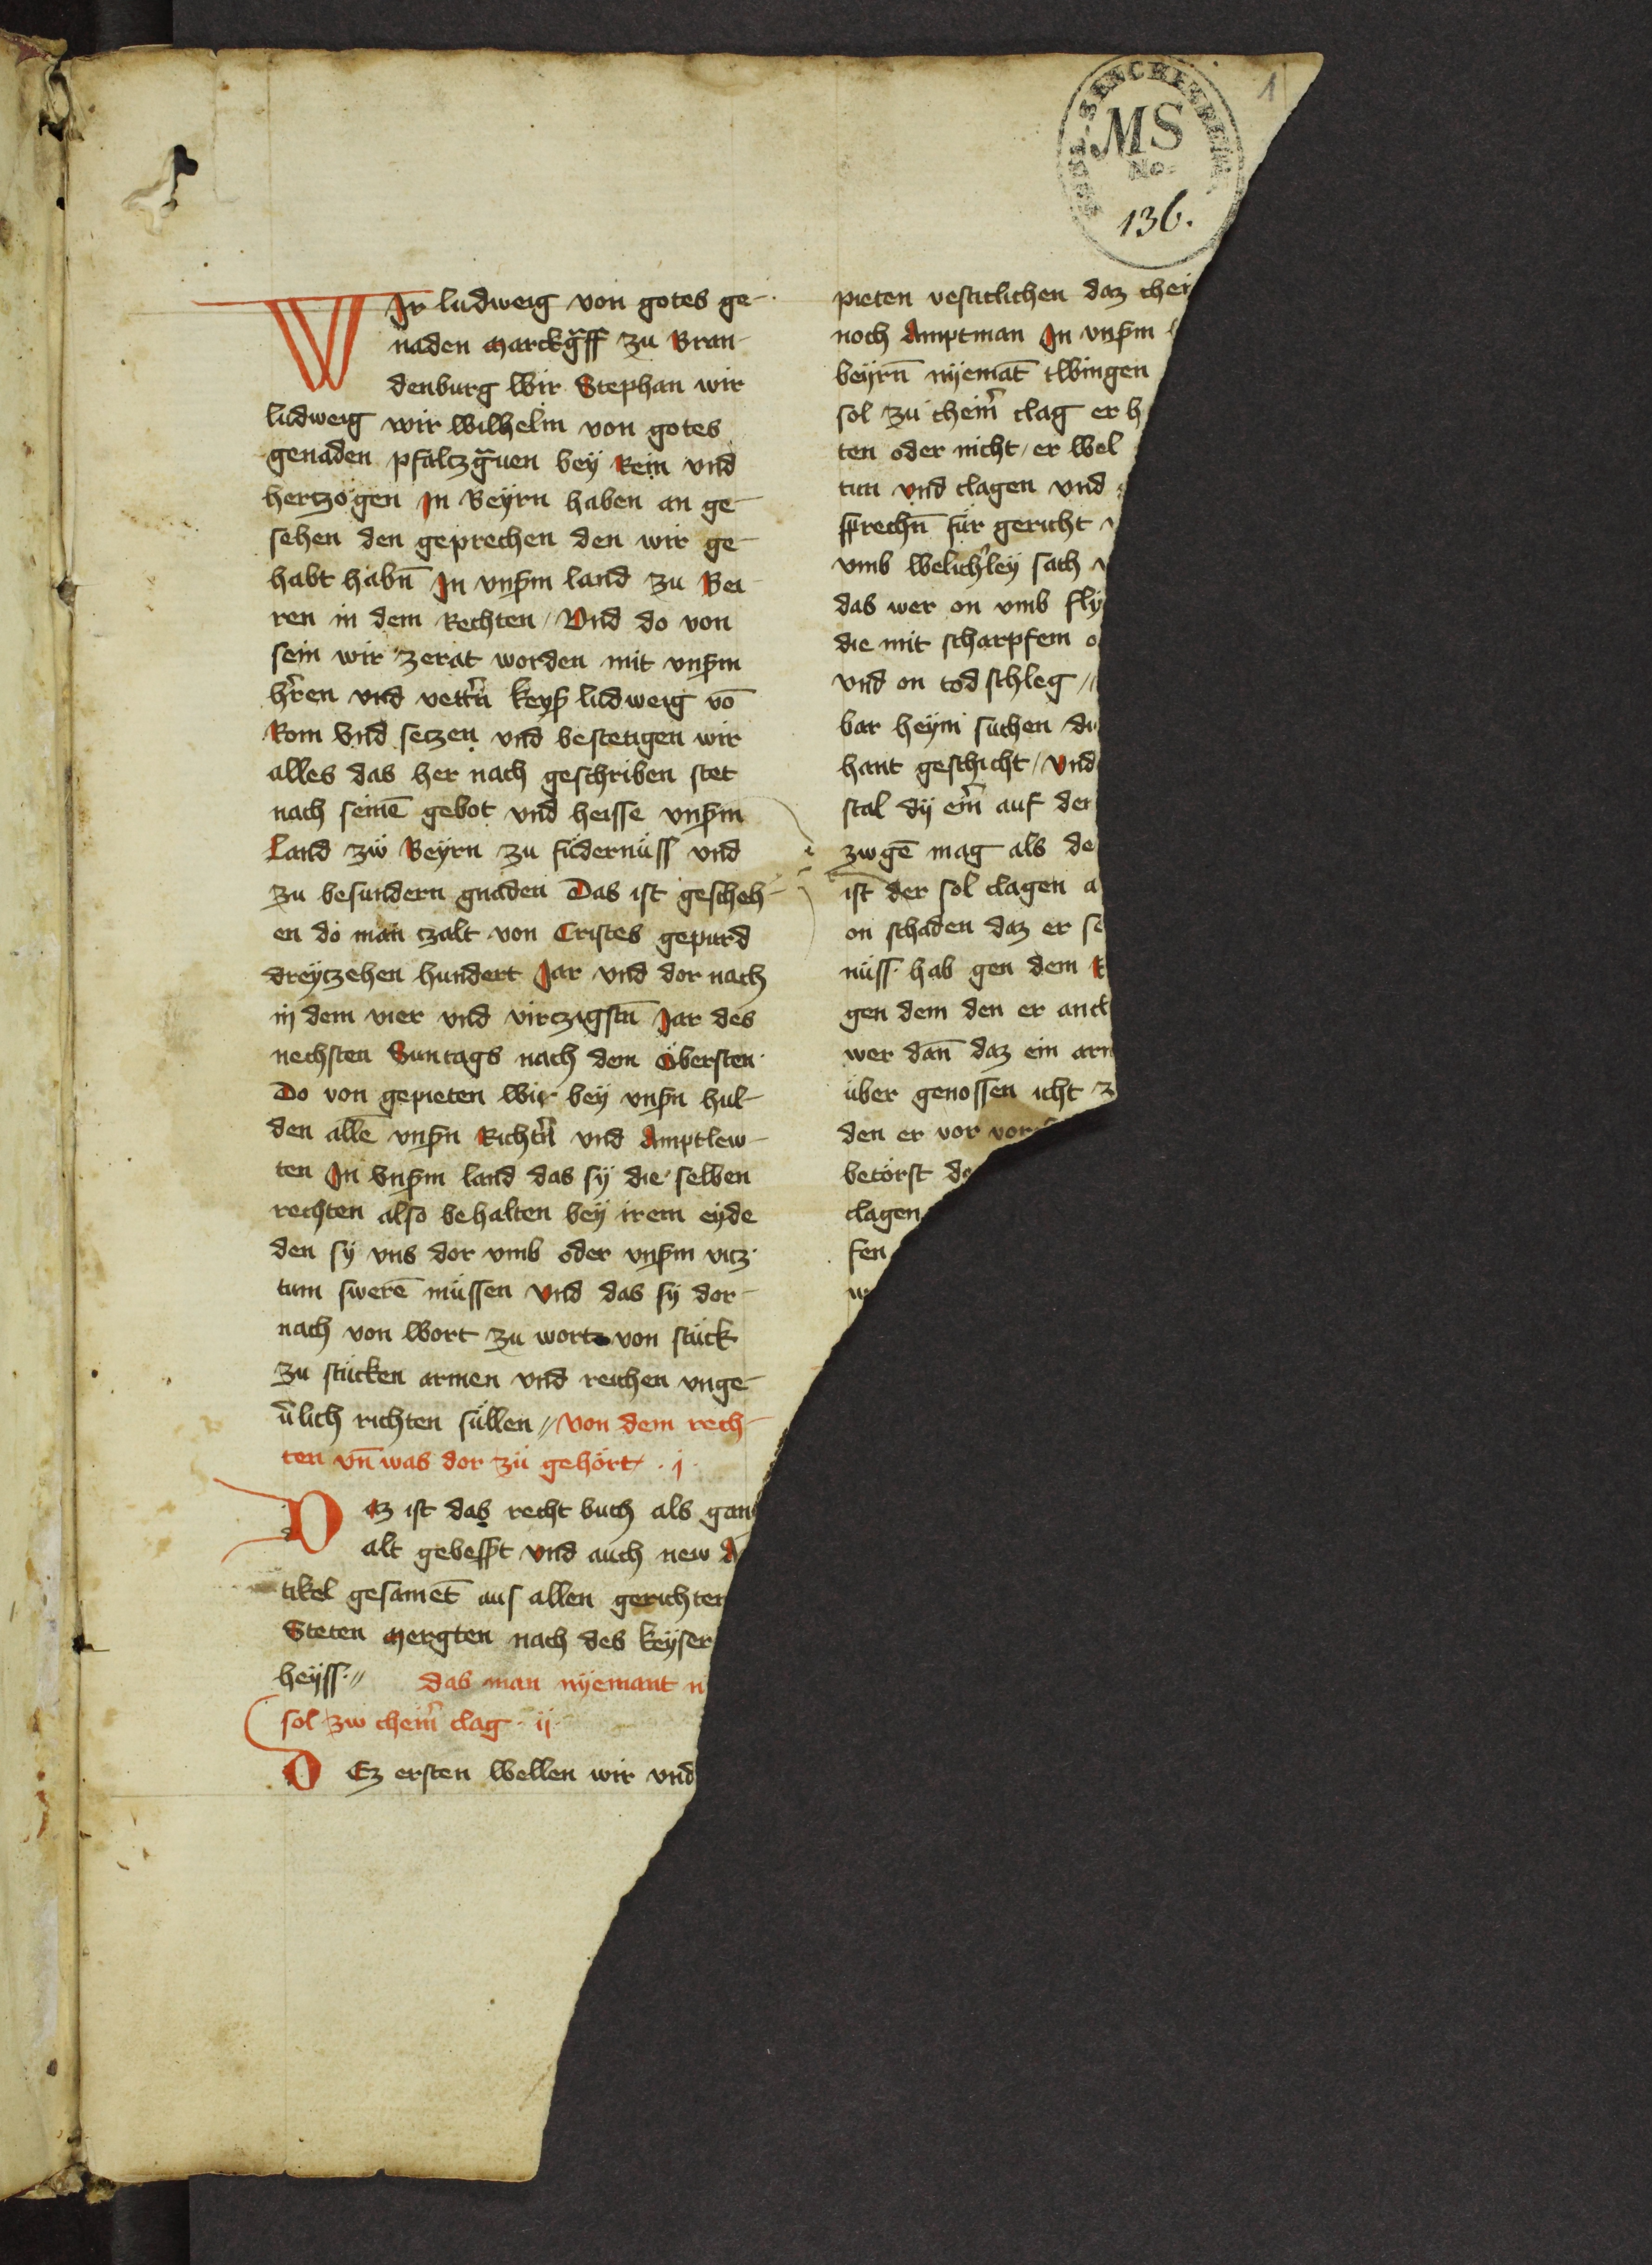 1
MS
No.
136.
WIr ludweig von gotes ge-
naden Marckgff zu Bran-
denburg Wir Stephan wir
ludweig wir Wilhelm von gotes
genaden pfaltzguen bey Rein vnd
hertzogen In Beyrn haben an ge-
sehen den geprechen den wir ge-
habt habn̄ In vnßm land zu Bei
ren in dem Rechten / Vnd do von
sein wir zerat worden mit vnßm
hr̄en vnd vettrn keyß ludweig vō
Rom vnd setzen vnd bestetigen wir
alles das her nach geschriben stet
nach seinē gebot vnd heisse vnßm
Land zw Beyrn zu füdernüss vnd
zu besundern gnaden Das ist gescheh-
en do man tzalt von Cristes gepurd
dreytzehen hundert Jar vnd dor nach
in dem vier vnd virtzigstn̄ Jar des
nechsten Suntags nach dem Öbersten
Do von gepieten Wir bey vnßn hul-
den allē vnßn Richtn̄ vnd Amptlew-
ten In Vnßm land das sy die selben
rechten also behalten bey irem eyde
den sy vns dor vmb oder vnßm vitz
tum swerē müssen Vnd das sy dor-
nach von Wort zu wort von stück
zu stücken armen vnd reichen vnge-
u̇lich richten süllen // von dem rech-
ten vn̄ was dor zü gehört . i .
Daz ist das recht buch als gan
alt gebeßt vnd auch new A
tikel gesamet̄ aus allen gerichten
Steten Mergten nach des keyser
heyss // das man nyemant n
sol zw cheim̄ clag . ij .
DEz ersten Wellen wir vnd
pieten vestitlichen daz chei
noch Amptman In vnßm l
beyrn̄ nyemāt twingen
sol zu cheim̄ clag er h
ten oder nicht / er Wel
tun vnd clagen vnd
sprechn̄ für gericht v
vmb Welichley sach v
das wer on vmb fly
die mit scharpfem o
vnd on tod schleg //
bar heym suchen di
hant geschicht / Vnd
stal dy eim̄ auf der
zwgē mag als de
ist der sol clagen a
on schaden daz er se
nüss hab gen dem R
gen dem den er ancl
wer dan̄ daz ein arm
über genossen icht z
den er vor vor
betörst do
clagen
fen
w